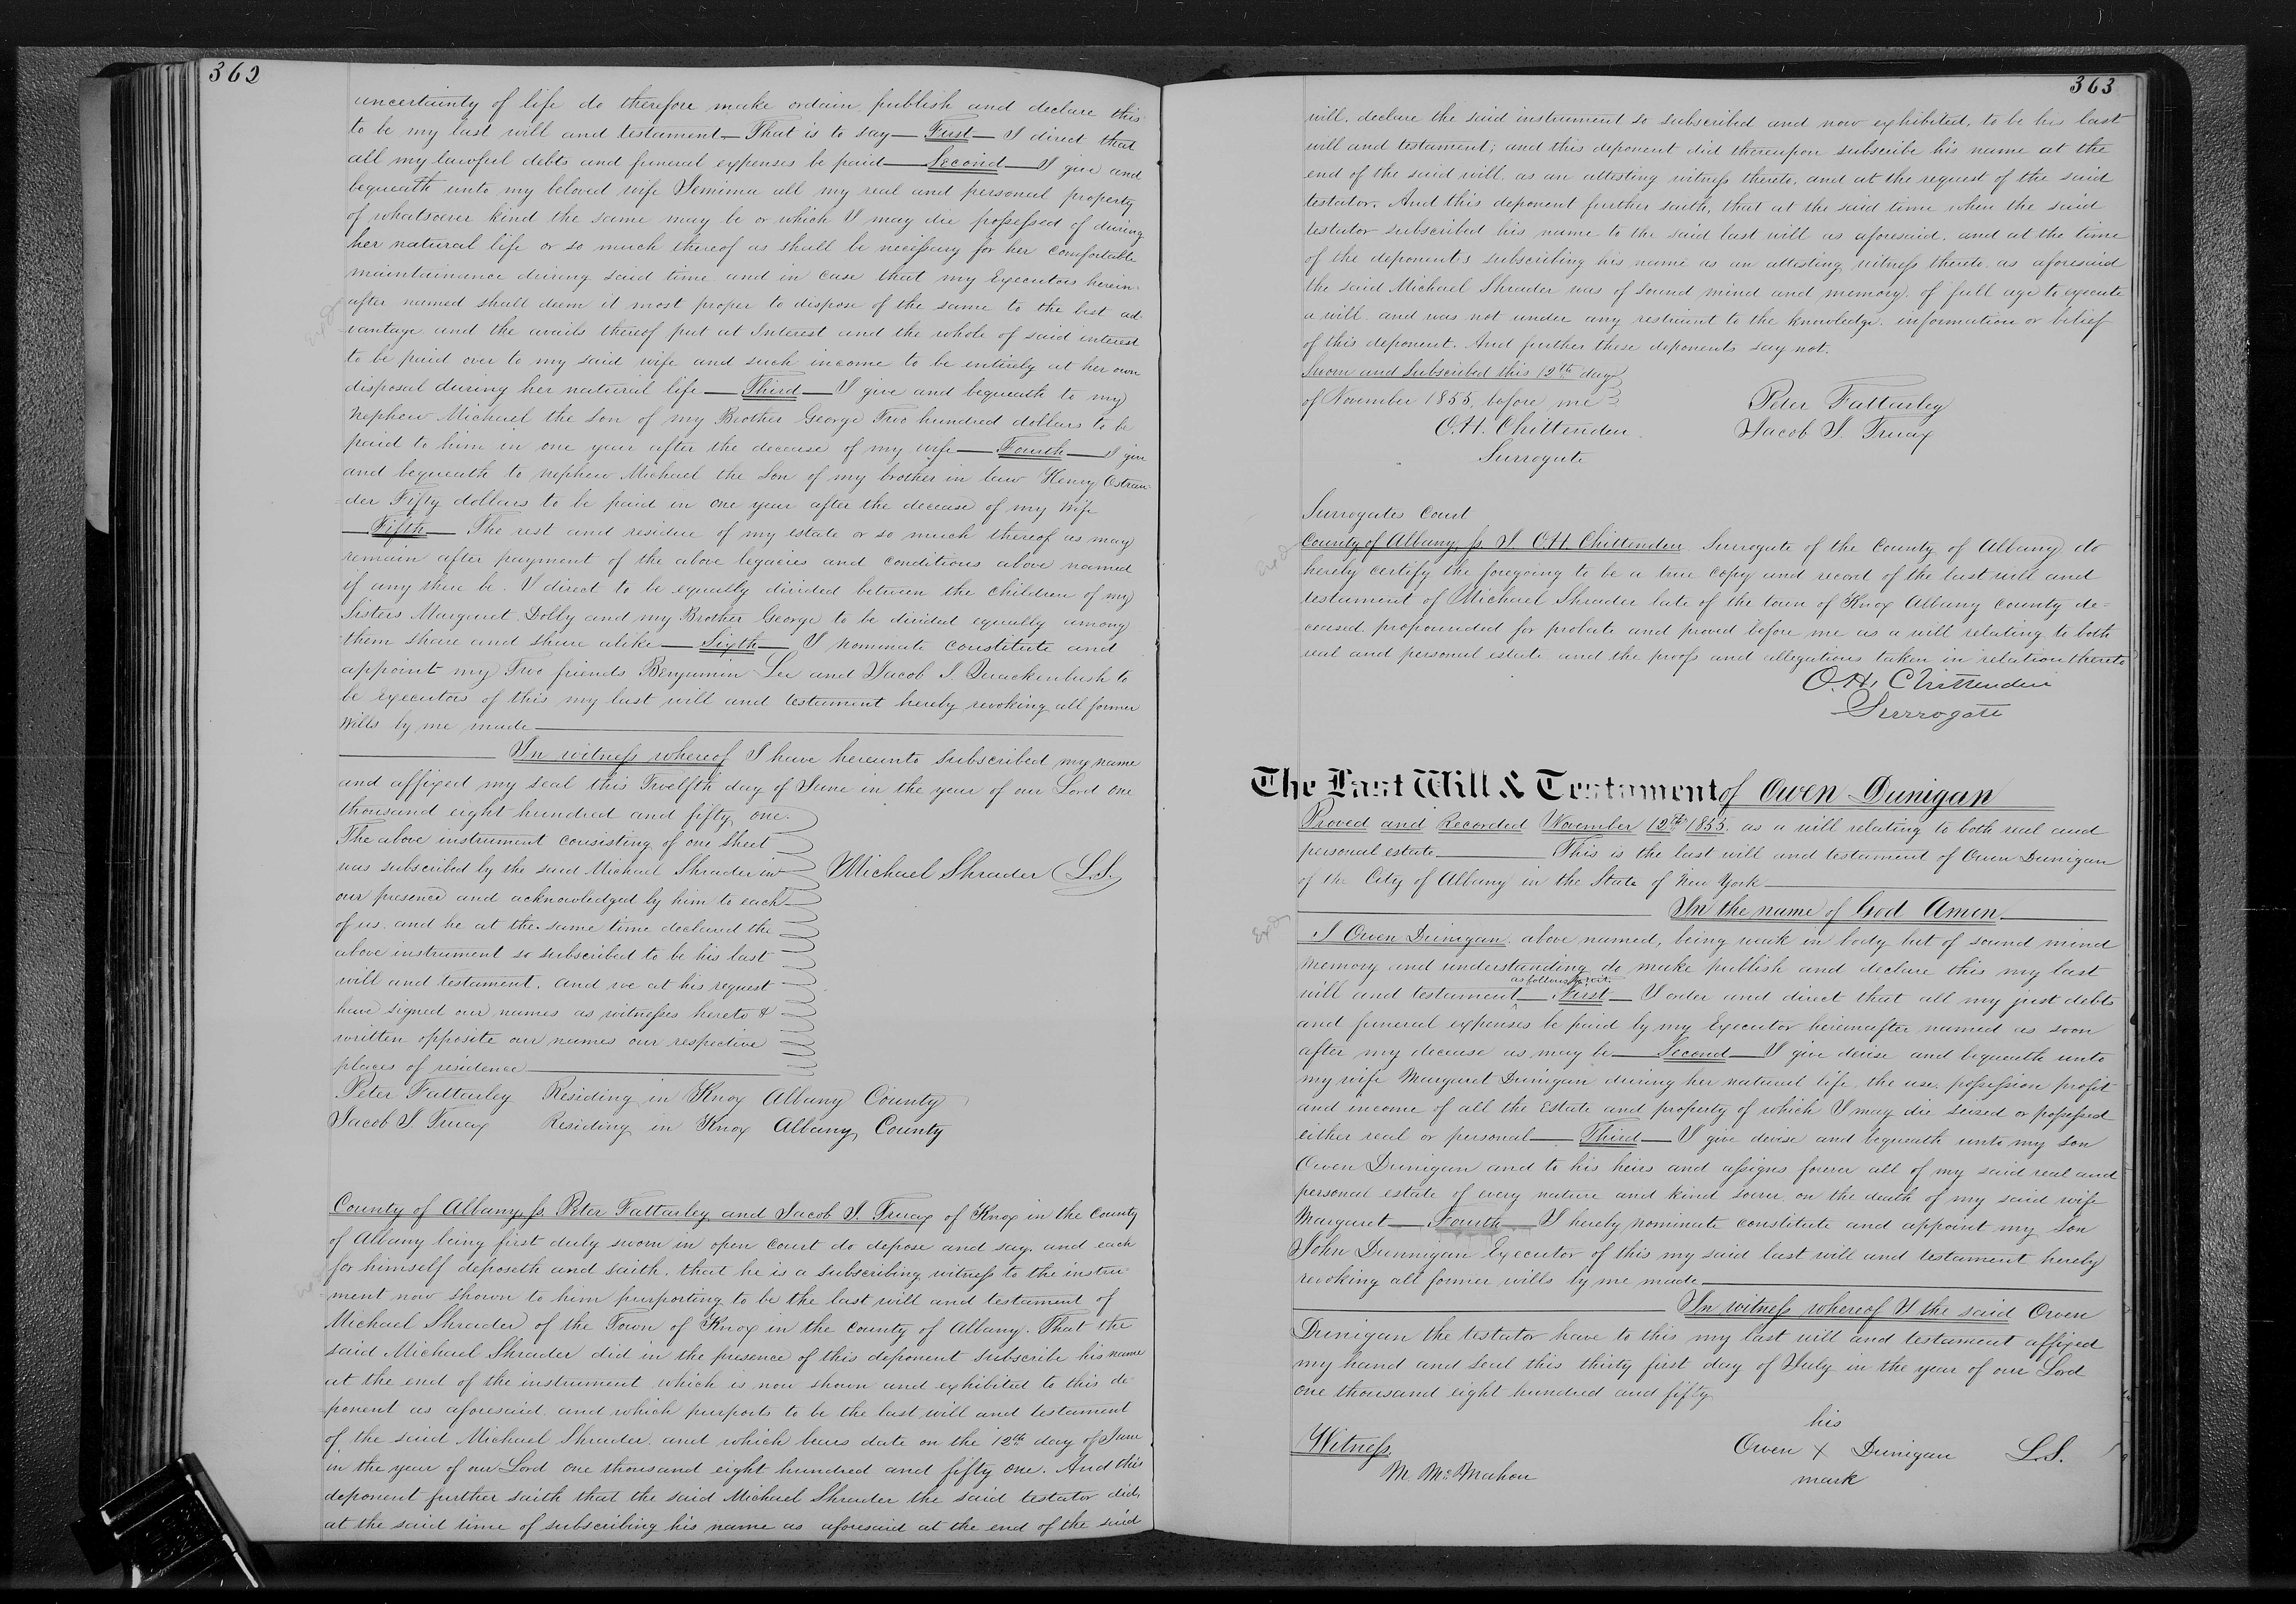 362
uncertainty of life do therefore make ordain publish and declare this
to be my last will and testament — That is to say — First — I direct that
all my lawful debts and funeral expenses be paid — Second — I give and
bequeath unto my beloved wife Jemima all my real and personal property
of whatsoever kind the same may be or which I may die possessed of during
her natural life or so much thereof as shall be necessary for her comfortable
maintainance during said time and in case that my Executors herein-
after named shall deem it most proper to dispose of the same to the best ad
vantage and the avails thereof put at Interest and the whole of said interest
to be paid over to my said wife and such income to be entirely at her own
disposal during her natural life — Third — I give and bequeath to my
Nephew Michael the Son of my Brother George Two hundred dollars to be
paid to him in one year after the decease of my wife — Fourth — I give
and bequeath to nephew Michael the Son of my brother in law Henry Ostran-
der Fifty dollars to be paid in one year after the decease of my Wife
— Fifth — The rest and residue of my estate or so much thereof as may
remain after payment of the above legacies and conditions above named
if any there be. I direct to be equally divided between the children of my
Sisters Margaret Dolly and my Brother George to be divided equally among
them share and share alike — Sixth — I nominate constitute and
appoint my Two friends Benjamin Lee and Jacob I. Quackenbush to
be executors of this my last will and testament hereby revoking all former
Wills by me made
In witness whereof I have hereunto subscribed my name
and affixed my seal this Twelfth day of June in the year of our Lord one
thousand eight hundred and fifty one.
The above instrument consisting of one sheet
was subscribed by the said Michael Shrader in Michael Shrader L.S.
our presence and acknowledged by him to each
of us. and he at the same time declared the
above instrument so subscribed to be his last
will and testament. and we at his request
have signed our names as witnesses hereto &
written opposite our names our respective
places of residence
Peter Fattarley Residing in Knox Albany County
Jacob I. Truax Residing in Knox Albany County
County of Albany ss Peter Fattarley and Jacob I. Truax of Knox in the County
of Albany being first duly sworn in open Court do depose and say. and each
for himself deposeth and saith. that he is a subscribing witness to the instru-
ment now shown to him purporting to be the last will and testament of
Michael Shrader of the Town of Knox in the County of Albany. That the
said Michael Shrader did in the presence of this deponent subscribe his name
at the end of the instrument which is now shown and exhibited to this de
ponent as aforesaid and which purports to be the last will and testament
of the said Michael Shrader. and which bears date on the 12th day of June
in the year of our Lord one thousand eight hundred and fifty one. And this
deponent further saith that the said Michael Shrader the said testator did,
at the said time of subscribing his name as aforesaid at the end of the said
363
will. declare the said instrument so subscribed and now exhibited, to be his last
will and testament; and this deponent did thereupon subscribe his name at the
end of the said will. as an attesting witness thereto, and at the request of the said
testator. And this deponent further saith, that at the said time when the said
testator subscribed his name to the said last will as aforesaid, and at the time
of the deponents subscribing his name as an attesting witness thereto as aforesaid
the said Michael Shrader was of sound mind and memory, of full age to execute
a will. and was not under any restraint to the knowledge. information or belief
of this deponent. And further these deponents say not.
Sworn and Subscribed this 12th day
of November 1855. before me Peter Fattarley
O.H. Chittenden Jacob I. Truax
Surrogate
Surrogates Court
County of Albany ss I. O.H. Chittenden Surrogate of the County of Albany do
hereby certify the foregoing to be a true copy and record of the last will and
testament of Michael Shrader late of the town of Knox Albany County de=
ceased propounded for probate and proved before me as a will relating to both
real and personal estate and the proofs and allegations taken in relation thereto
O.H. Chittenden
Surrogate
The Last Will & Testament of Owen Dunigan
Proved and Recorded November 12th 1855. as a will relating to both real and
personal estate — This is the last will and testament of Owen Dunigan
of the City of Albany in the State of New York
In the name of God Amen.
I Owen Dunigan above named, being weak in body but of sound mind
memory and understanding do make publish and declare this my last
as follows to wit.
will and testament — First — I order and direct that all my just debts
and funeral expenses be paid by my Executor hereinafter named as soon
after my decease as may be — Second — I give devise and bequeath unto
my wife Margaret Dunigan during her natural life. the use, possession profit
and income of all the Estate and property of which I may die seised or possessed
either real or personal — Third — I give devise and bequeath unto my son
Owen Dunigan and to his heirs and assigns forever all of my said real and
personal estate of every nature and kind soever. on the death of my said wife
Margaret — Fourth — I hereby nominate constitute and appoint my Son
John Dunnigan Executor of this my said last will and testament hereby
revoking all former wills by me made
In witness whereof I the said Owen
Dunigan the testator have to this my last will and testament affixed
my hand and seal this thirty first day of July in the year of our Lord
one thousand eight hundred and fifty
his
Witness Owen X Dunigan L.S.
M. McMahon mark